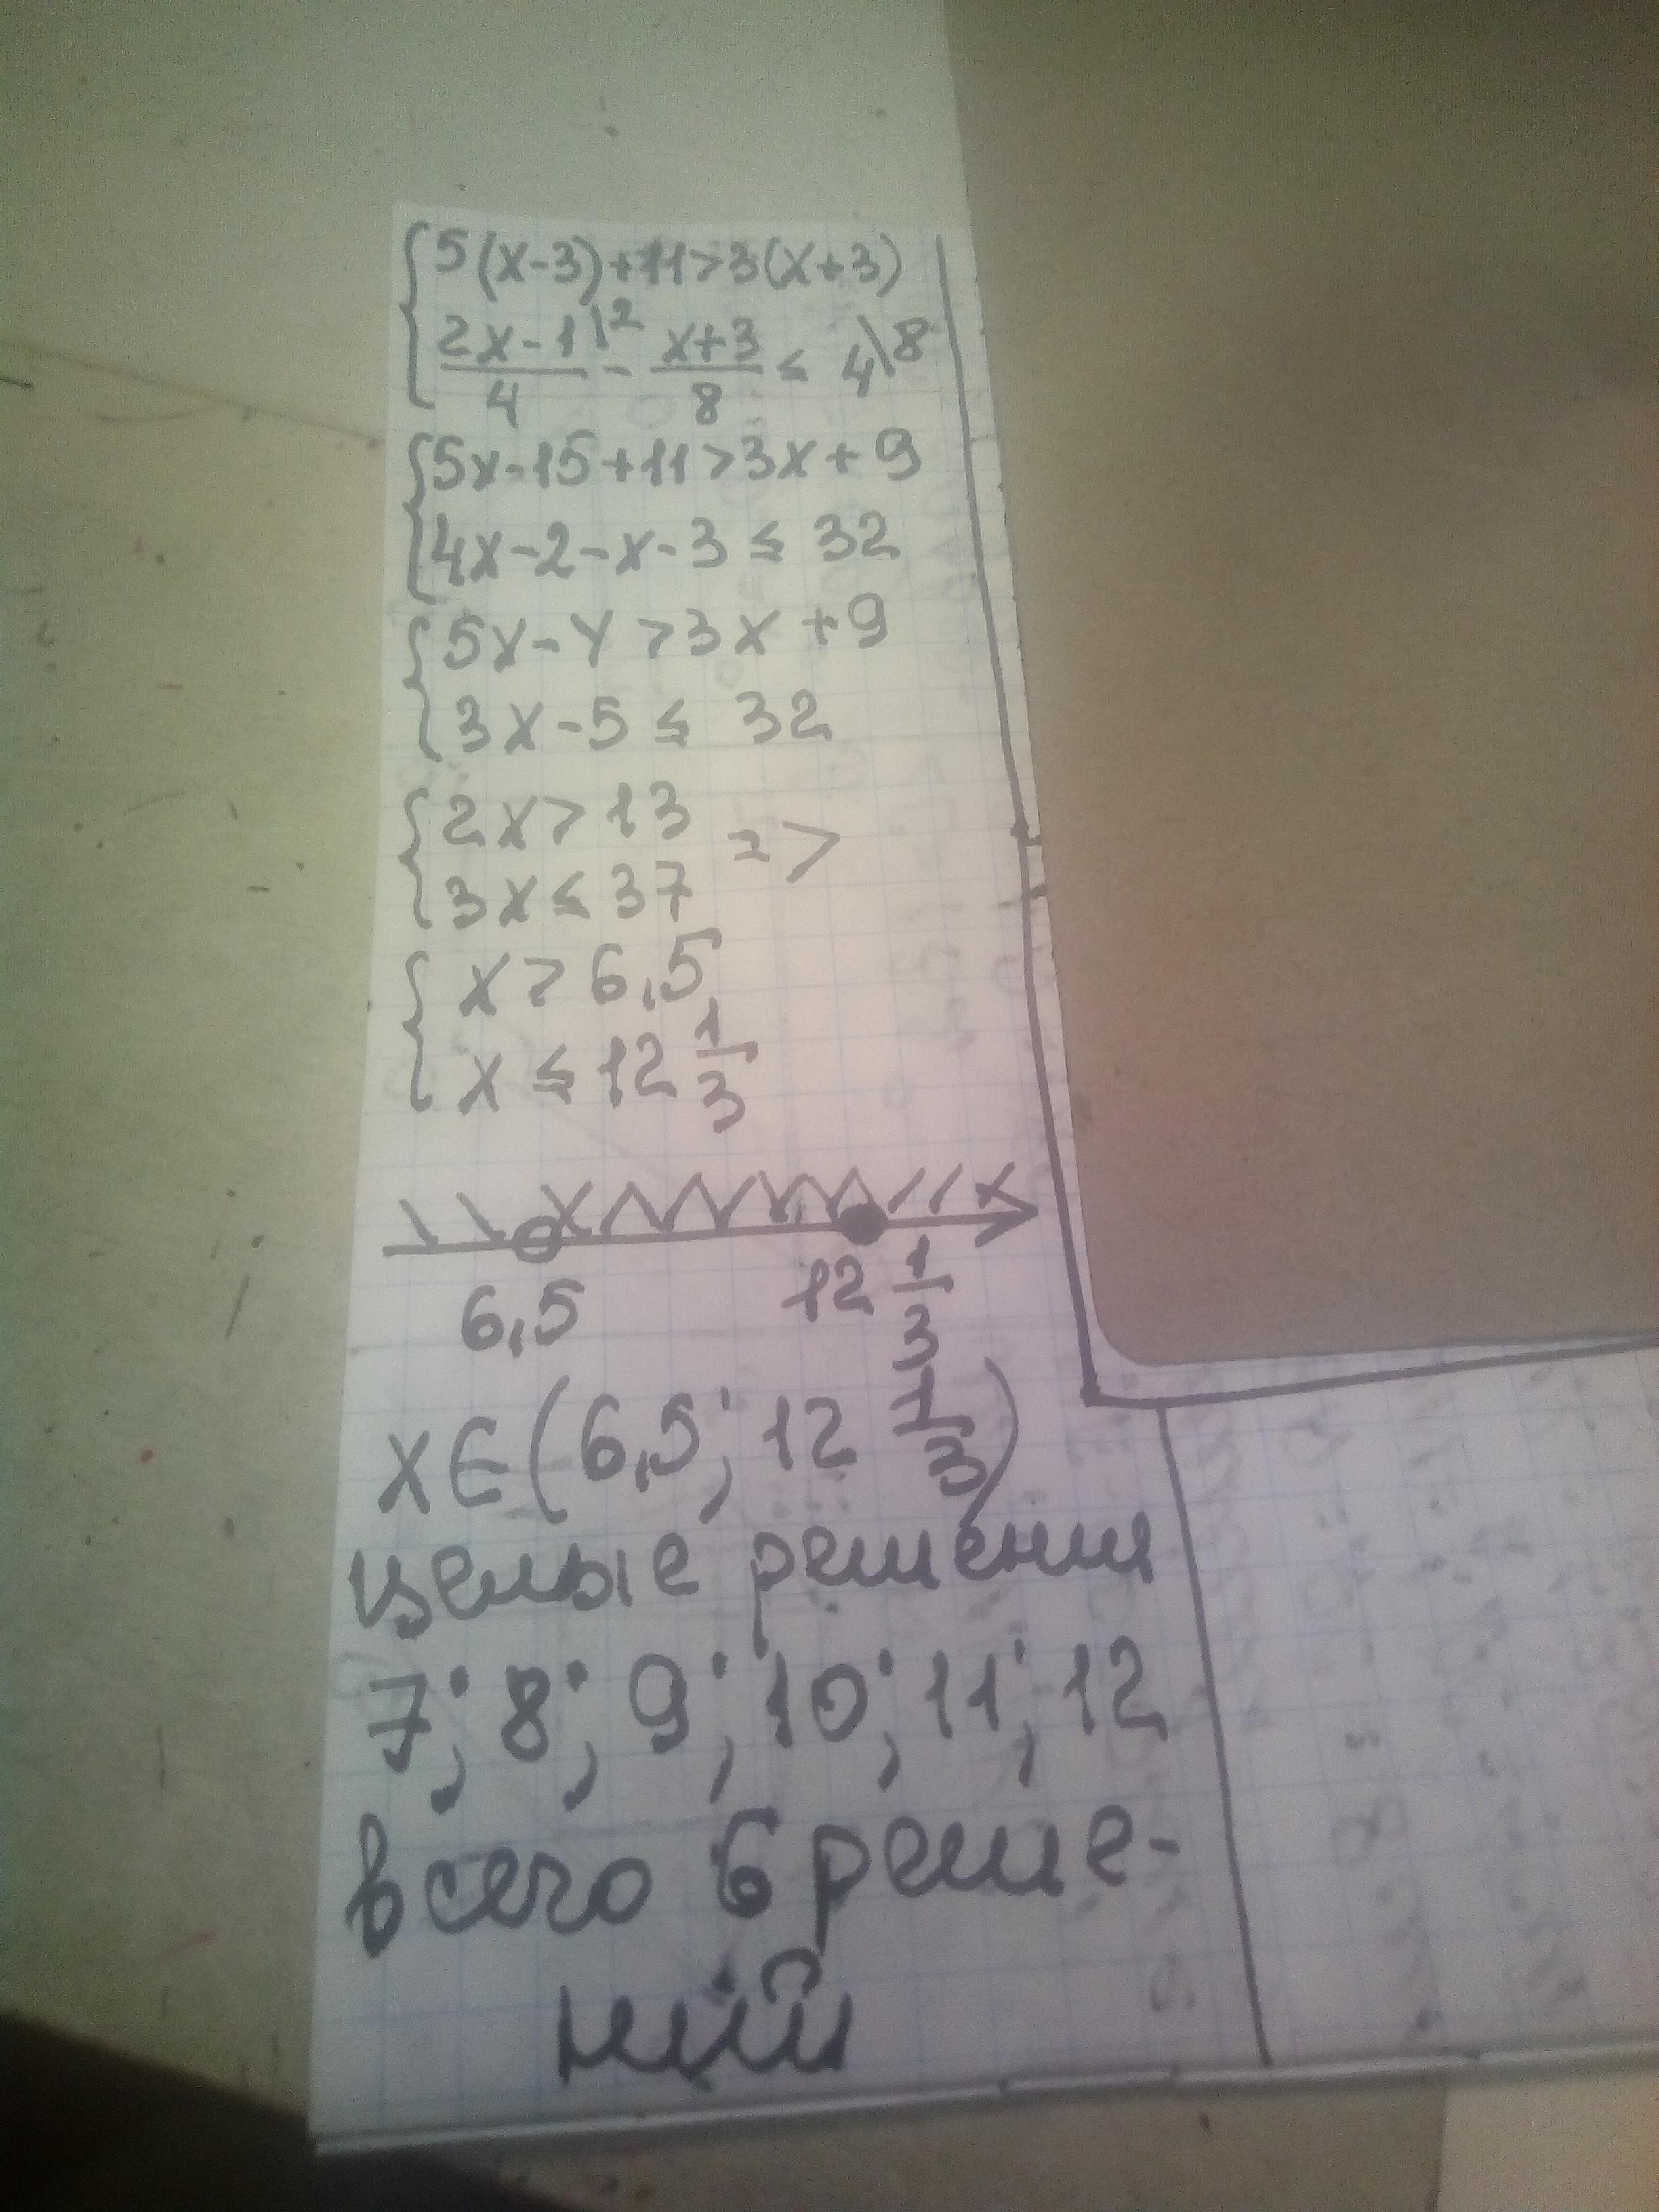 5(x-3)+11>3(x+3)
(2x-1)/4 \2 - (x+3)/8 ≤ 4 \8
5x-15+11>3x+9
4x-2-x-3 ≤ 32
5x-4>3x+9
3x-5 ≤ 32
2x>13 =>
3x ≤ 37
x>6,5
x ≤ 12 1/3
x
6,5 12 1/3
x∈(6,5; 12 1/3)
целые решения
7; 8; 9; 10; 11; 12
всего 6 реше-
ний